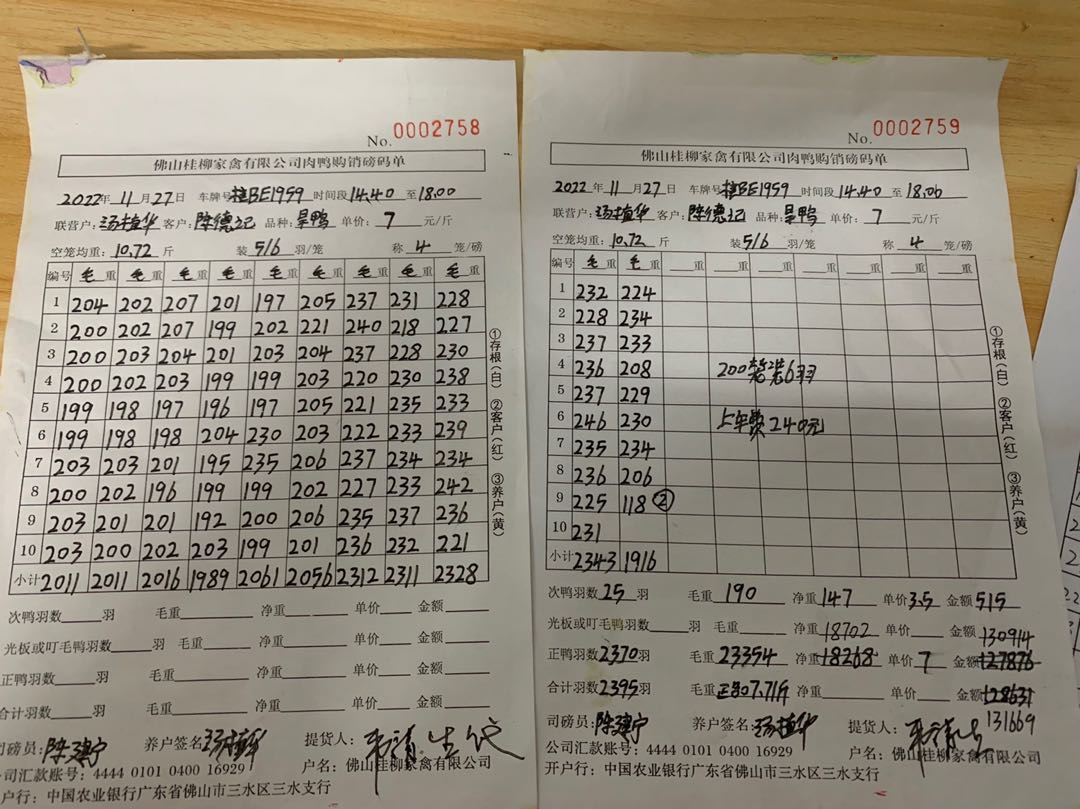 No. 0002758
佛山桂柳家禽有限公司肉鸭购销磅码单
2022年11月27日 车牌号桂BE1959 时间段14.40至18.00
联营户:汤植华 客户:陈德记 品种:旱鸭 单价:7 元/斤
空笼均重:10.72斤 装5/6羽/笼 称4笼/磅
编号 毛重 毛重 毛重 毛重 毛重 毛重 毛重 毛重 毛重
1 204 202 207 201 197 205 237 231 228
2 200 202 207 199 202 221 240 218 227
3 200 203 204 201 203 204 237 228 230
4 200 202 203 199 199 203 220 230 238
5 199 198 197 196 197 205 221 235 233
6 199 198 198 204 230 203 222 233 239
7 203 203 201 195 235 206 237 234 234
8 200 202 196 199 199 202 227 233 242
9 203 201 201 192 200 206 235 237 236
10 203 200 202 203 199 201 236 232 221
小计 2011 2011 2016 1989 2061 2056 2312 2311 2328
①存根(白) ②客户(红) ③养户(黄)
次鸭羽数 羽 毛重 净重 单价 金额
光板或叮毛鸭羽数 羽 毛重 净重 单价 金额
正鸭羽数 羽 毛重 净重 单价 金额
合计羽数 羽 毛重 净重 单价 金额
司磅员:陈建宁 养户签名:汤植华 提货人:
公司汇款账号:4444 0101 0400 16929 户名:佛山桂柳家禽有限公司
户行:中国农业银行广东省佛山市三水区三水支行
No. 0002759
佛山桂柳家禽有限公司肉鸭购销磅码单
2022年11月27日 车牌号桂BE1959 时间段14.40至18.00
联营户:汤植华 客户:陈德记 品种:旱鸭 单价:7 元/斤
空笼均重:10.72斤 装5/6羽/笼 称4笼/磅
编号 毛重 毛重 重 重 重 重 重 重 重
1 232 224
2 228 234
3 237 233
4 236 208 200 装6羽
5 237 229
6 246 230 上车费240元
7 235 234
8 236 206
9 225 118②
10 231
小计 2343 1916
①存根(白) ②客户(红) ③养户(黄)
次鸭羽数25羽 毛重190 净重147 单价3.5 金额515
光板或叮毛鸭羽数 羽 毛重 净重18702 单价 金额130914
正鸭羽数2370羽 毛重23354 净重18268 单价7 金额127876
合计羽数2395羽 毛重正均7.71斤 净重 单价 金额128631
131669
司磅员:陈建宁 养户签名:汤植华 提货人:
公司汇款账号:4444 0101 0400 16929 户名:佛山桂柳家禽有限公司
开户行:中国农业银行广东省佛山市三水区三水支行